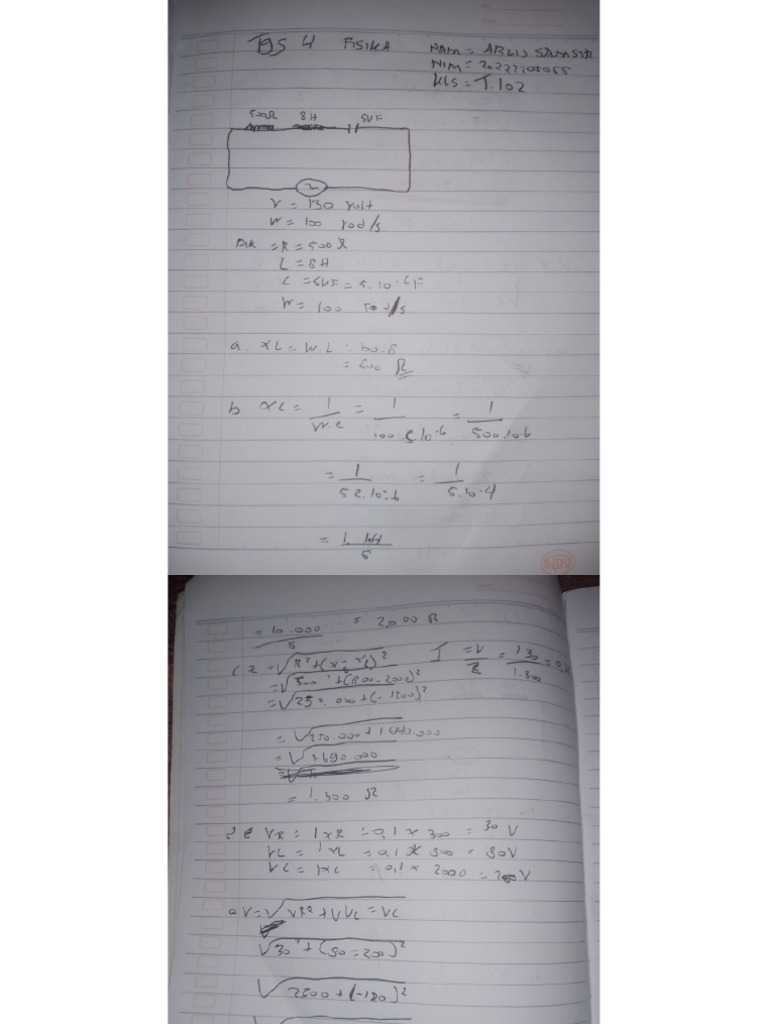 Tgs 4 FISIKA
NIM = 20222205055
KLS = T.102
500Ω 8H 5UF
V = 130 volt
W = 100 rad/s
Dik = R = 500 Ω
L = 8H
C = 5UF = 5.10-6F
W = 100 rad/s
a. XL = W.L = 100.8
= 800 Ω
b XC = 1/W.C = 1/100.5.10-6 = 1/500.10-6
= 1/5.10-4
= 1.104/5
= 10.000/5 = 2000 Ω
C. Z = √R²+(XL-XC)²
I = V/Z = 130/1.300 = 0,1
= √500²+(800-2000)²
= √250.000+(-1200)²
= √250.000+1.440.000
= √1690.000
= 1.300 Ω
VR = I x R = 0,1 x 300 = 30 V
VL = I XL = 0,1 x 800 = 80V
VC = IXC = 0,1 x 2000 = 200V
V = √VR²+VVL=VC
√30²+(80=200)²
√2500+(-120)²